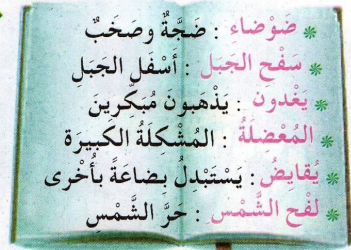 ضَوْضاءِ : ضَجَّةٌ وصَخَبٌ
سَفْحِ الجَبَلِ : أَسْفَلِ الجَبَلِ
يَغْدون : يَذْهَبونَ مُبَكِّرين
المُعْضلَةُ : المُشْكِلَةُ الكَبيرَة
يُقايضُ : يَسْتَبْدِلُ بِضاعَةً بأُخْرى
لَفْحِ الشَّمْسِ : حَرَّ الشَّمْسِ